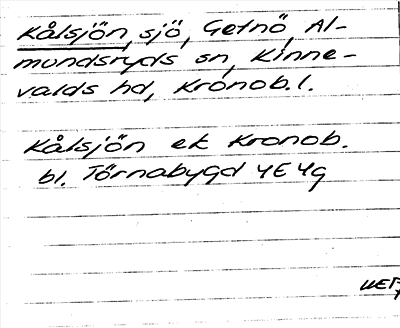 Kålsjön, sjö, Getnö, Al-
mundsryds sn, Kinne-
valds hd, Kronob.l.
Kålsjön ek Kronob.
bl. Törnabygd 4E4g